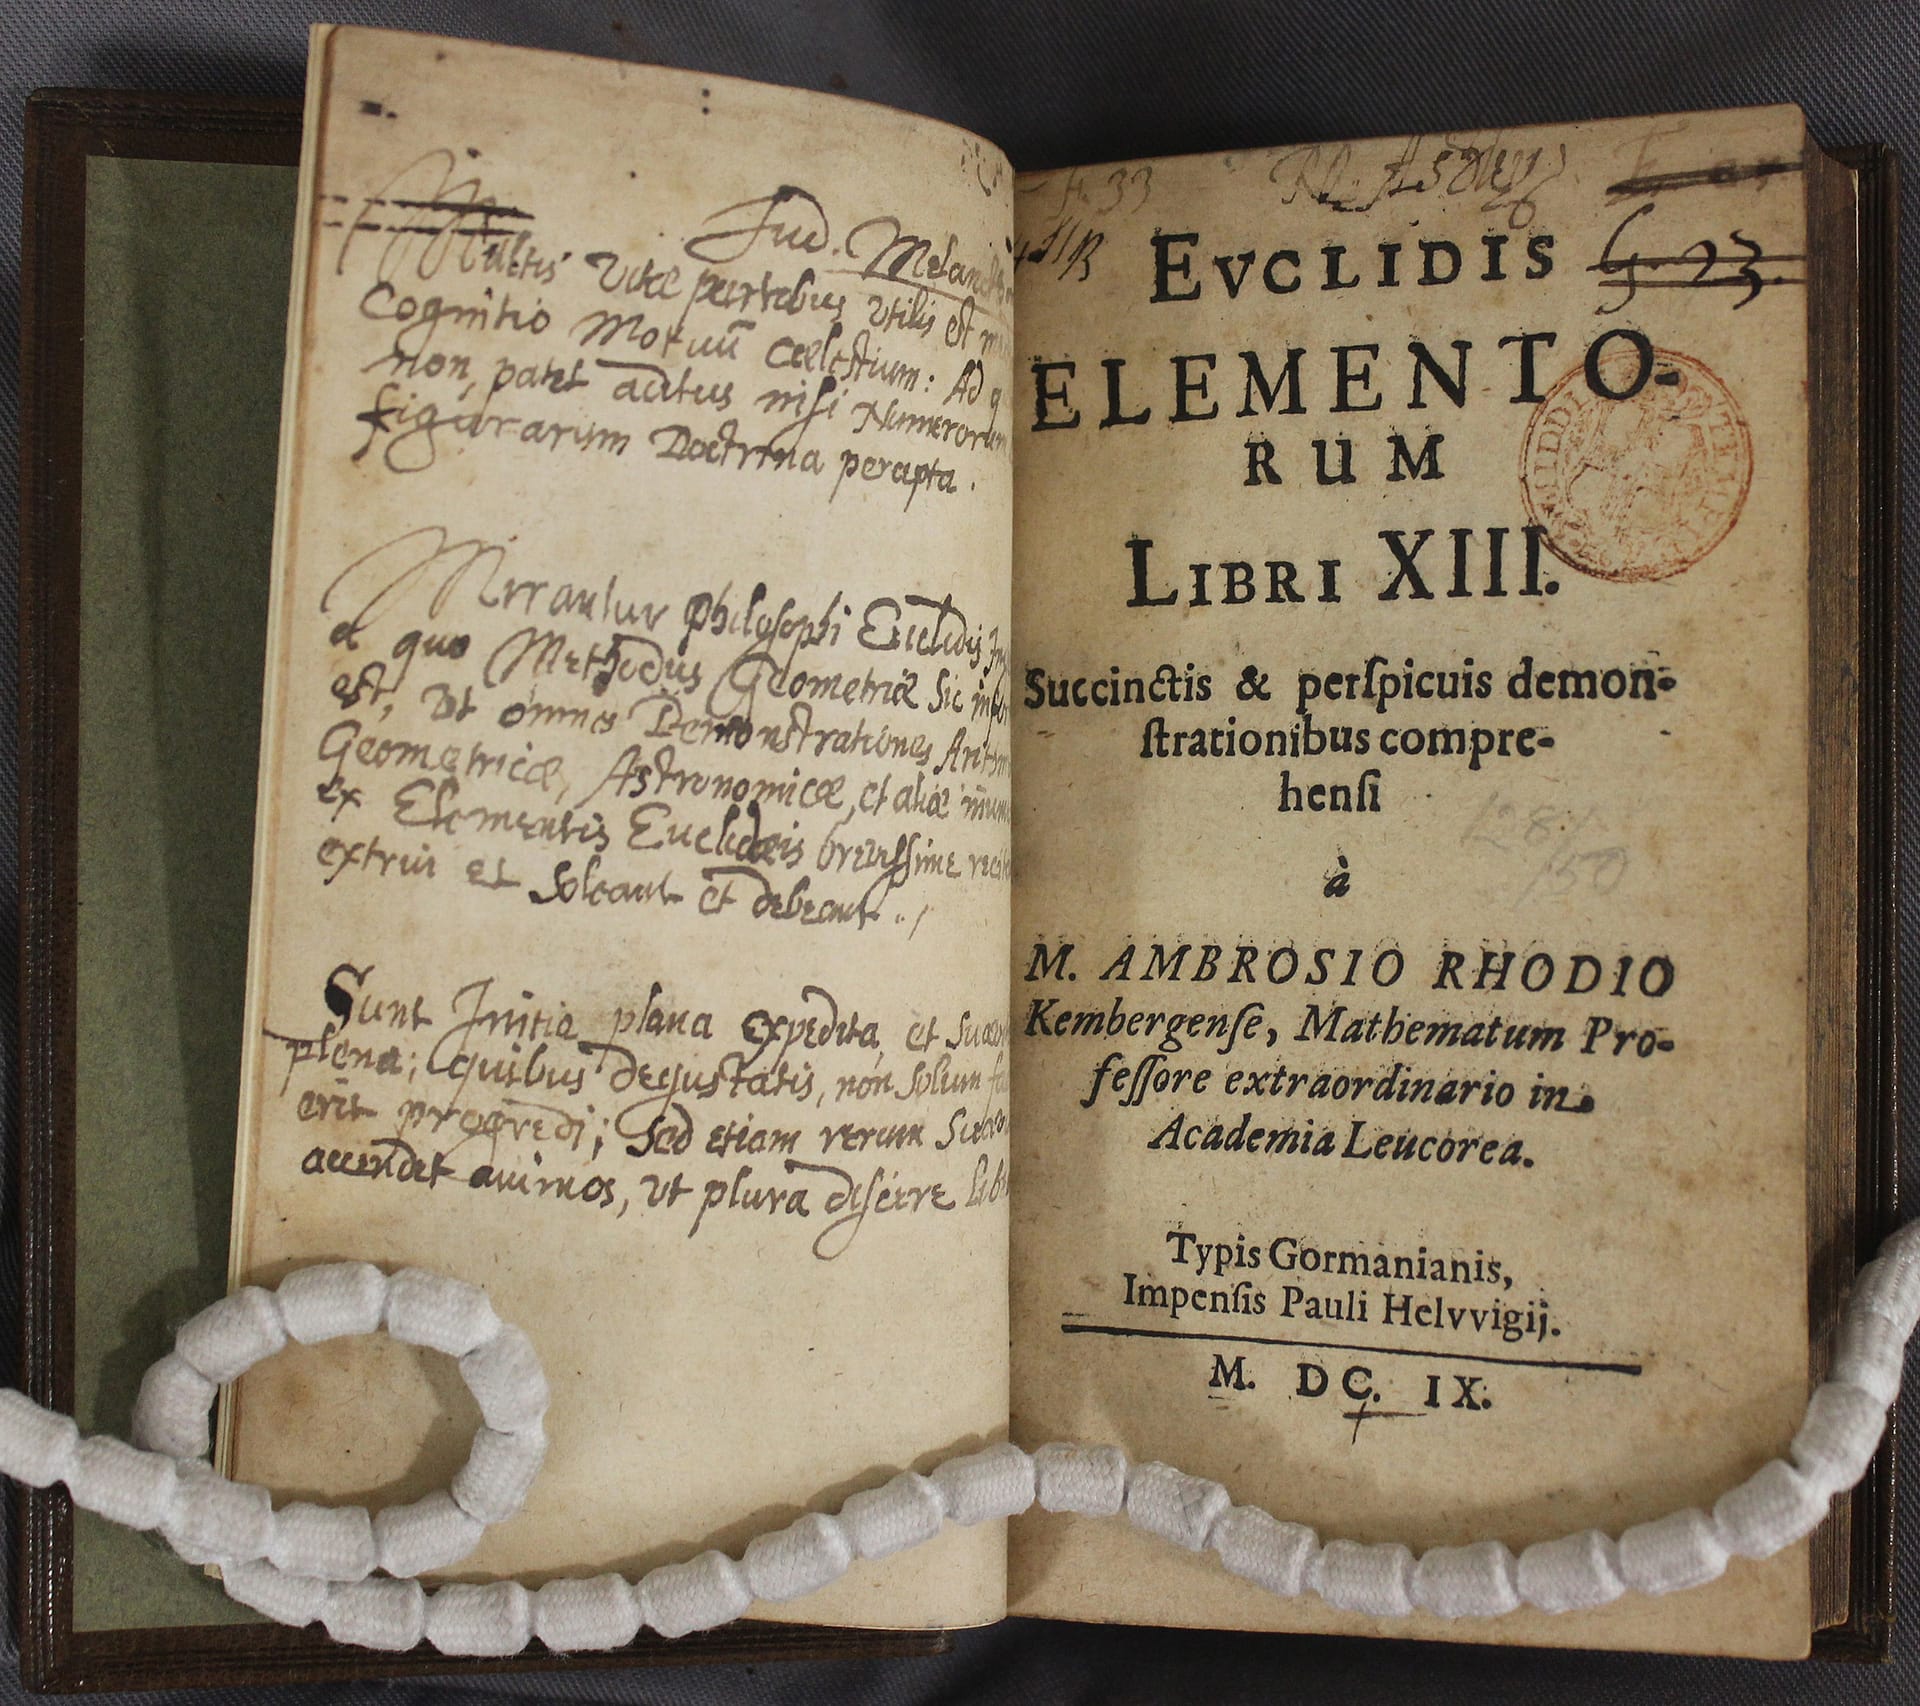 Jud. Melan
Multis Vitæ partibus Utilis est
Cognitio Motuū Cælestium: Ad
non, patet aditus nisi Numerorum
figurarum Doctrina percepta.
Mirantur Philosophi Euclidis
a quo Methodus Geometriæ Sic
est, Ut omnes Demonstrationes
Geometricæ, Astronomicæ, et aliæ
ex Elementis Euclidæis brevissime
extrui et Soleant et debeant.
Sunt Initia plana expedita, et
plena; quibus degustatis, non Solum
erit progredi; Sed etiam rerum
accendet animos, ut plura discere
EVCLIDIS
G. 23.
ELEMENTO-
RUM
LIBRI XIII.
Succinctis & perſpicuis demon-
ſtrationibus compre-
henſi
à
M. AMBROSIO RHODIO
Kembergenſe, Mathematum Pro-
feſſore extraordinario in
Academia Leucorea.
Typis Gormanianis,
Impenſis Pauli Helvvigij.
M. DC. IX.